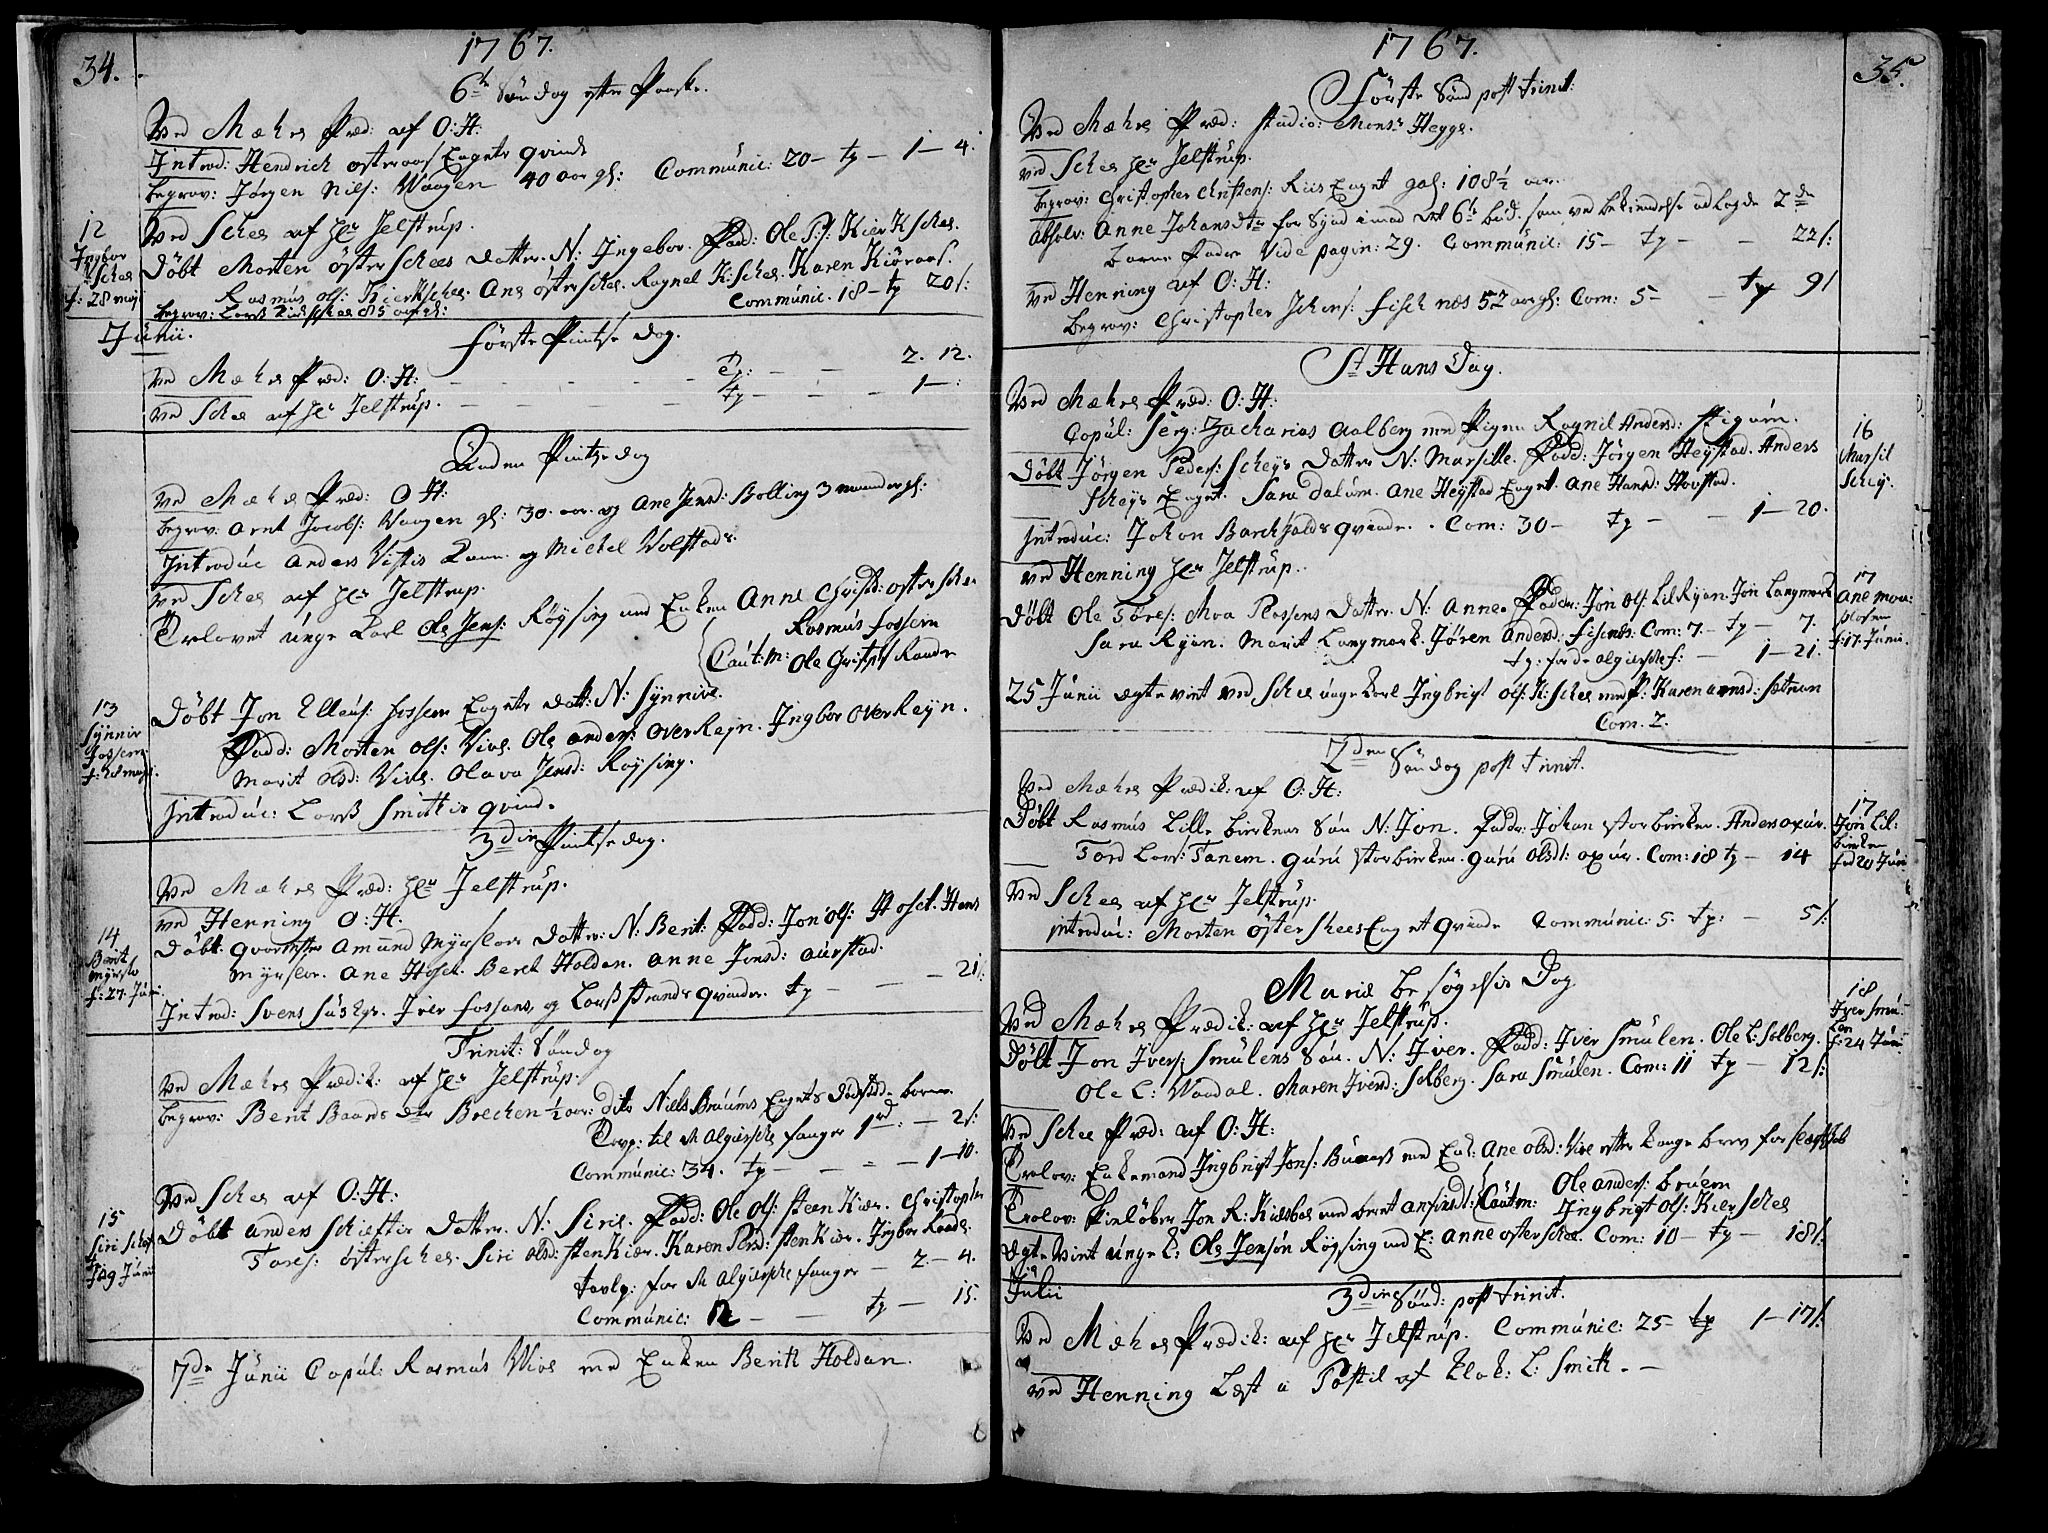 34.
1767.
6te Söndag efter Paaske.
Ved Mæhre Præd: af O: H:
Introd: Hendrich Österaas Eagets qvinde Communic: 20 — tp — 1 — 4.
begrov: Jørgen Nils: Waagen 40 aar gl:
12
Ingbor
Schee
f: 28 maj
Ved Schee af Hr Jelstrup.
Döbt Morten öster Schees datter. N: Ingebor. Fadd: Ole P: Kierkschee.
Rasmus Ols: Kierkschee. Ane österschee. Ragnel K: Schee. Karen Kiöraas.
Communic: 18 — tp 20 s:
begrov: Lorss Kirkschee 85 aar gl:
Junii.
Förste Pintse dag.
Ved Mæhre Præd: O: H: — — — — tp: — — 2. 12.
ved Schee af Hr Jelstrup. — — — — tp — — 1 — :
Anden Pintsedag
Ved Mæhre Præd: O: H:
begrov: Arnt Jacobs: Waagen gl: 30. aar. og Ane Jensd: Bolling 3 maander gl:
Introduc Anders Vistis Kone. og Michel Wolstads.
ved Schee af Hr Jelstrup.
Trolovet unge Karl Ole Jens: Röysing med Enken Anne Christd: österschee
Caut: m: Rasmus Fossem
Ole Grists: Kande
13
Synniv
Fossem
f: 28 maji.
Döbt Jon Ellevs: Fossem Eagets datt: N: Synnive.
Fadd: Morten Ols: Vive. Ole Anders: Over Rejn. Ingbor OverReyn.
Marit Olsd: Vive. Olava Jensd: Röysing.
Introduc: Lorss Smitts qvinde.
3die Pintsedag.
Ved Mæhre Præd: Hr Jelstrup.
ved Henning O: H.
14
Berit
Myrslo
f: 27. Juni
Döbt: Amund Myrsloes datter: N: Berit: Fadd: Jon Ols: Hoset. Hans
Myrsloe. Ane Hoset. Beret Holden. Anne Jonsd: Aurstad.
Introd: Svens Suskys. Iver Fossens, og Lorss Strands qvinder. tp — — — 21 s:
Trinit: Söndag
Ved Mæhre Prædik: af Hr Jelstrup.
begrov: Berit Baards dtr Brechen ½ aar: dito Niels Bruums Eagets Dödföd: barn.
Tavp: til de Algierske fanger 1 rd: — 2 s:
Communic: 34. tp — — — 1 — 10.
Ved Schee af O: H:
15
Siri Schef
f: 9 Junii
Döbt Anders Schieftis datter. N: Siril. Fadd: Ole Ols: SteenKiær. Christopher
Tores: österschee. Siri Olsd: StenKiær. Karen Persd: StenKiær. Ingbor Raade.
tavlp: for de Algierske fanger — 2. — 4.
Communic: 12 — — tp — 15.
7de Junii Copul: Rasmus Vive med Enken Berith Holdan.
1767.
35.
Förste Sönd post Trinit:
Ved Mæhre Præd: studio: Monsr Hegge.
ved Schee Hr Jelstrup.
begrov: Christopher Christens: Riis Eaget gal: 108½ aar.
Absolv: Anne Johansdtr for Synd imod det 6te bud. som ved bekiendelse udlagde 2de
Barne Fader Vide pagin: 29. Communic: 15 — tp — — 22 s:
Ved Henning af O: H:
begrov: Christopher Johns: Fischnæs 52 aar gl: Com: 5 — — tp 9 s
St Hans Dag.
Ved Mæhre Præd: O: H:
Copul: Serg: Zacharias Aalberg med Pigen Ragnil Andersd: Stiguen.
16
Marsil
Schey.
Döbt Jörgen Peders: Scheys datter N: Marsille. Fadd: Jörgen Heystad. Anders
Scheys Eaget. Sara Dalum. Ane Heystad Eaget. Ane Hansd: Hovstad.
Introduc: Johan Barchhalds qvinde. . Com: 30 — tp — — 1 — 20.
ved Henning Hr Jelstrup.
17
Ane Moa:
Plosen
f: 17. Junii.
Döbt Ole Töres: Moa Plassens datter N: Anne. Fadder: Jon Ols: LilRyan Jon Langmark
Sara Ryan. Marit Langmark. Jören Andersd: Fisenæs. Com: 7. — tp — 7.
tp: for de Algierske f: — 1 — 21.
25 Junii ægteviet ved Schee unge Karl Ingbrigt Ols: K: Schee med P: Karen Arnsd: Sætran
Com. 2.
2den Söndag post Trinit.
Ved Mæhre Prædik: af O: H:
17
Jon Lil:
birken
fod 20 Juni
Döbt Rasmus Lille birkens Sön N: Jon. Fadd: Johan Storbirken. Anders Oxur.
Tord Lors: Tanem. Guru Storbirken. Guru Olsd: Oxur. Com: 18 tp — 14
Ved Schee af Hr Jelstrup.
introduc: Morten öster Schees Eaget Qvinde Communic: 5. tp: — 5 s:
Mariæ besögelsis Dag.
Ved Mæhre Prædik: af Hr Jelstrup.
18
Iver Smu-
len
f: 24 Juni
Döbt Jon Ivers: Smulens Sön. N: Iver. Fadd: Iver Smulen. Ole L: Solberg.
Ole L: Vaadal. Maren Iversd: Solberg. Sara Smulen. Com: 11 tp — 12 s:
Ved Schee Præd: af O: H:
Trolov: Enkemand Ingbrigt Jons: Buaas med Enk: Ane Olsd: Vive efter Konge brev for slægtskab
Trolov: Skielöber Jon R: Kiesboe med Beret Anfinsd: Cautm: Ole Anders: Bruem
Ingbrigt Ols: Kier Schee
Ægte viet Unge K: Ole Jensön Röysing med E: Anne österschee. Com: 10 — tp — 18 s:
Julii
3die Sönd: post Trinit.
Ved Mæhre Prædik: af Hr Jelstrup. Communic: 25 — tp 1 — 17 s:
ved Henning Læst i Postil af Klok: L: Smith. —